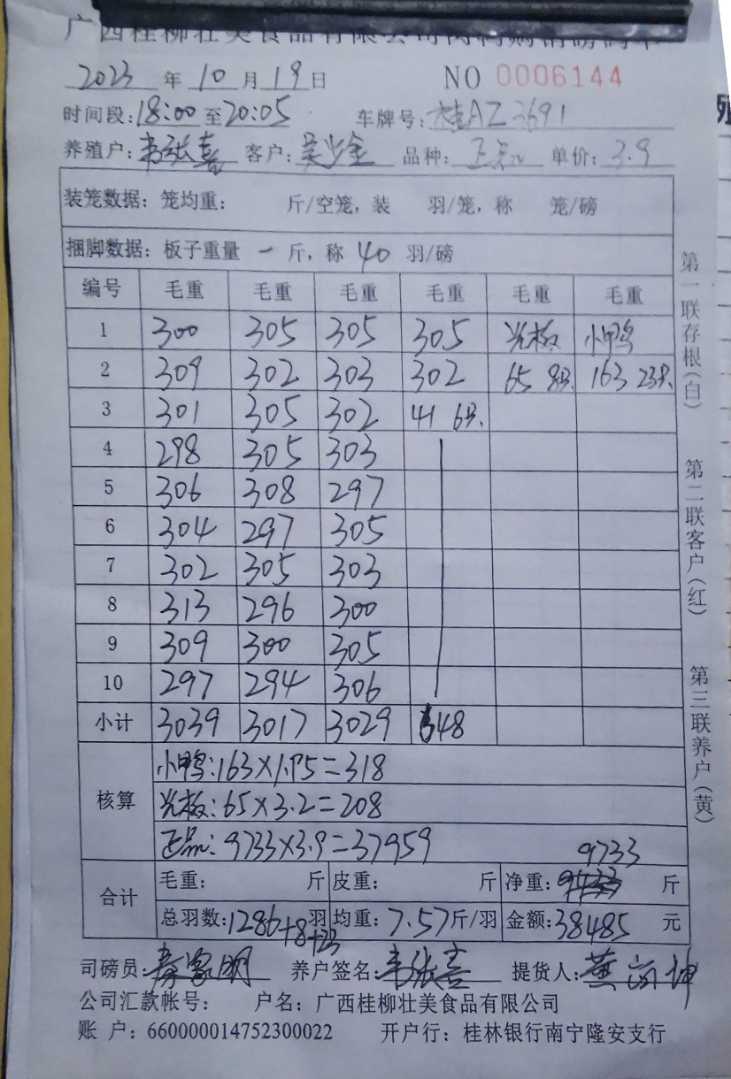 广西桂柳壮美食品有限公司肉鸭购销磅码单
2023 年 10 月 19 日 NO 0006144
时间段: 18:00 至 20:05 车牌号: 桂AZ3691
养殖户: 韦张喜 客户: 吴少金 品种: 正品 单价: 3.9
装笼数据: 笼均重: 斤/空笼, 装 羽/笼, 称 笼/磅
捆脚数据: 板子重量 一 斤, 称 40 羽/磅
编号 毛重 毛重 毛重 毛重 毛重 毛重
1 300 305 305 305 光板 小鸭
2 309 302 303 302 65 8只. 163 23只.
3 301 305 302 41 6只.
4 298 305 303
5 306 308 297
6 304 297 305
7 302 305 303
8 313 296 300
9 309 300 305
10 297 294 306
小计 3039 3017 3029 648
核算
小鸭: 163×1.95=318
光板: 65×3.2=208
正品: 9733×3.9=37959
9733
合计
毛重: 斤 皮重: 斤 净重: 斤
总羽数: 1286+8+23 羽 均重: 7.57 斤/羽 金额: 38485 元
司磅员: 养户签名: 韦张喜 提货人:
公司汇款帐号: 户名: 广西桂柳壮美食品有限公司
账 户: 660000014752300022 开户行: 桂林银行南宁隆安支行
第一联存根(白)
第二联客户(红)
第三联养户(黄)